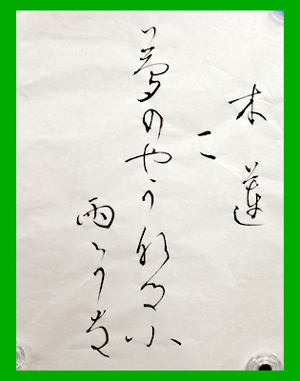 木蓮
に
夢のやうなる小
雨かな